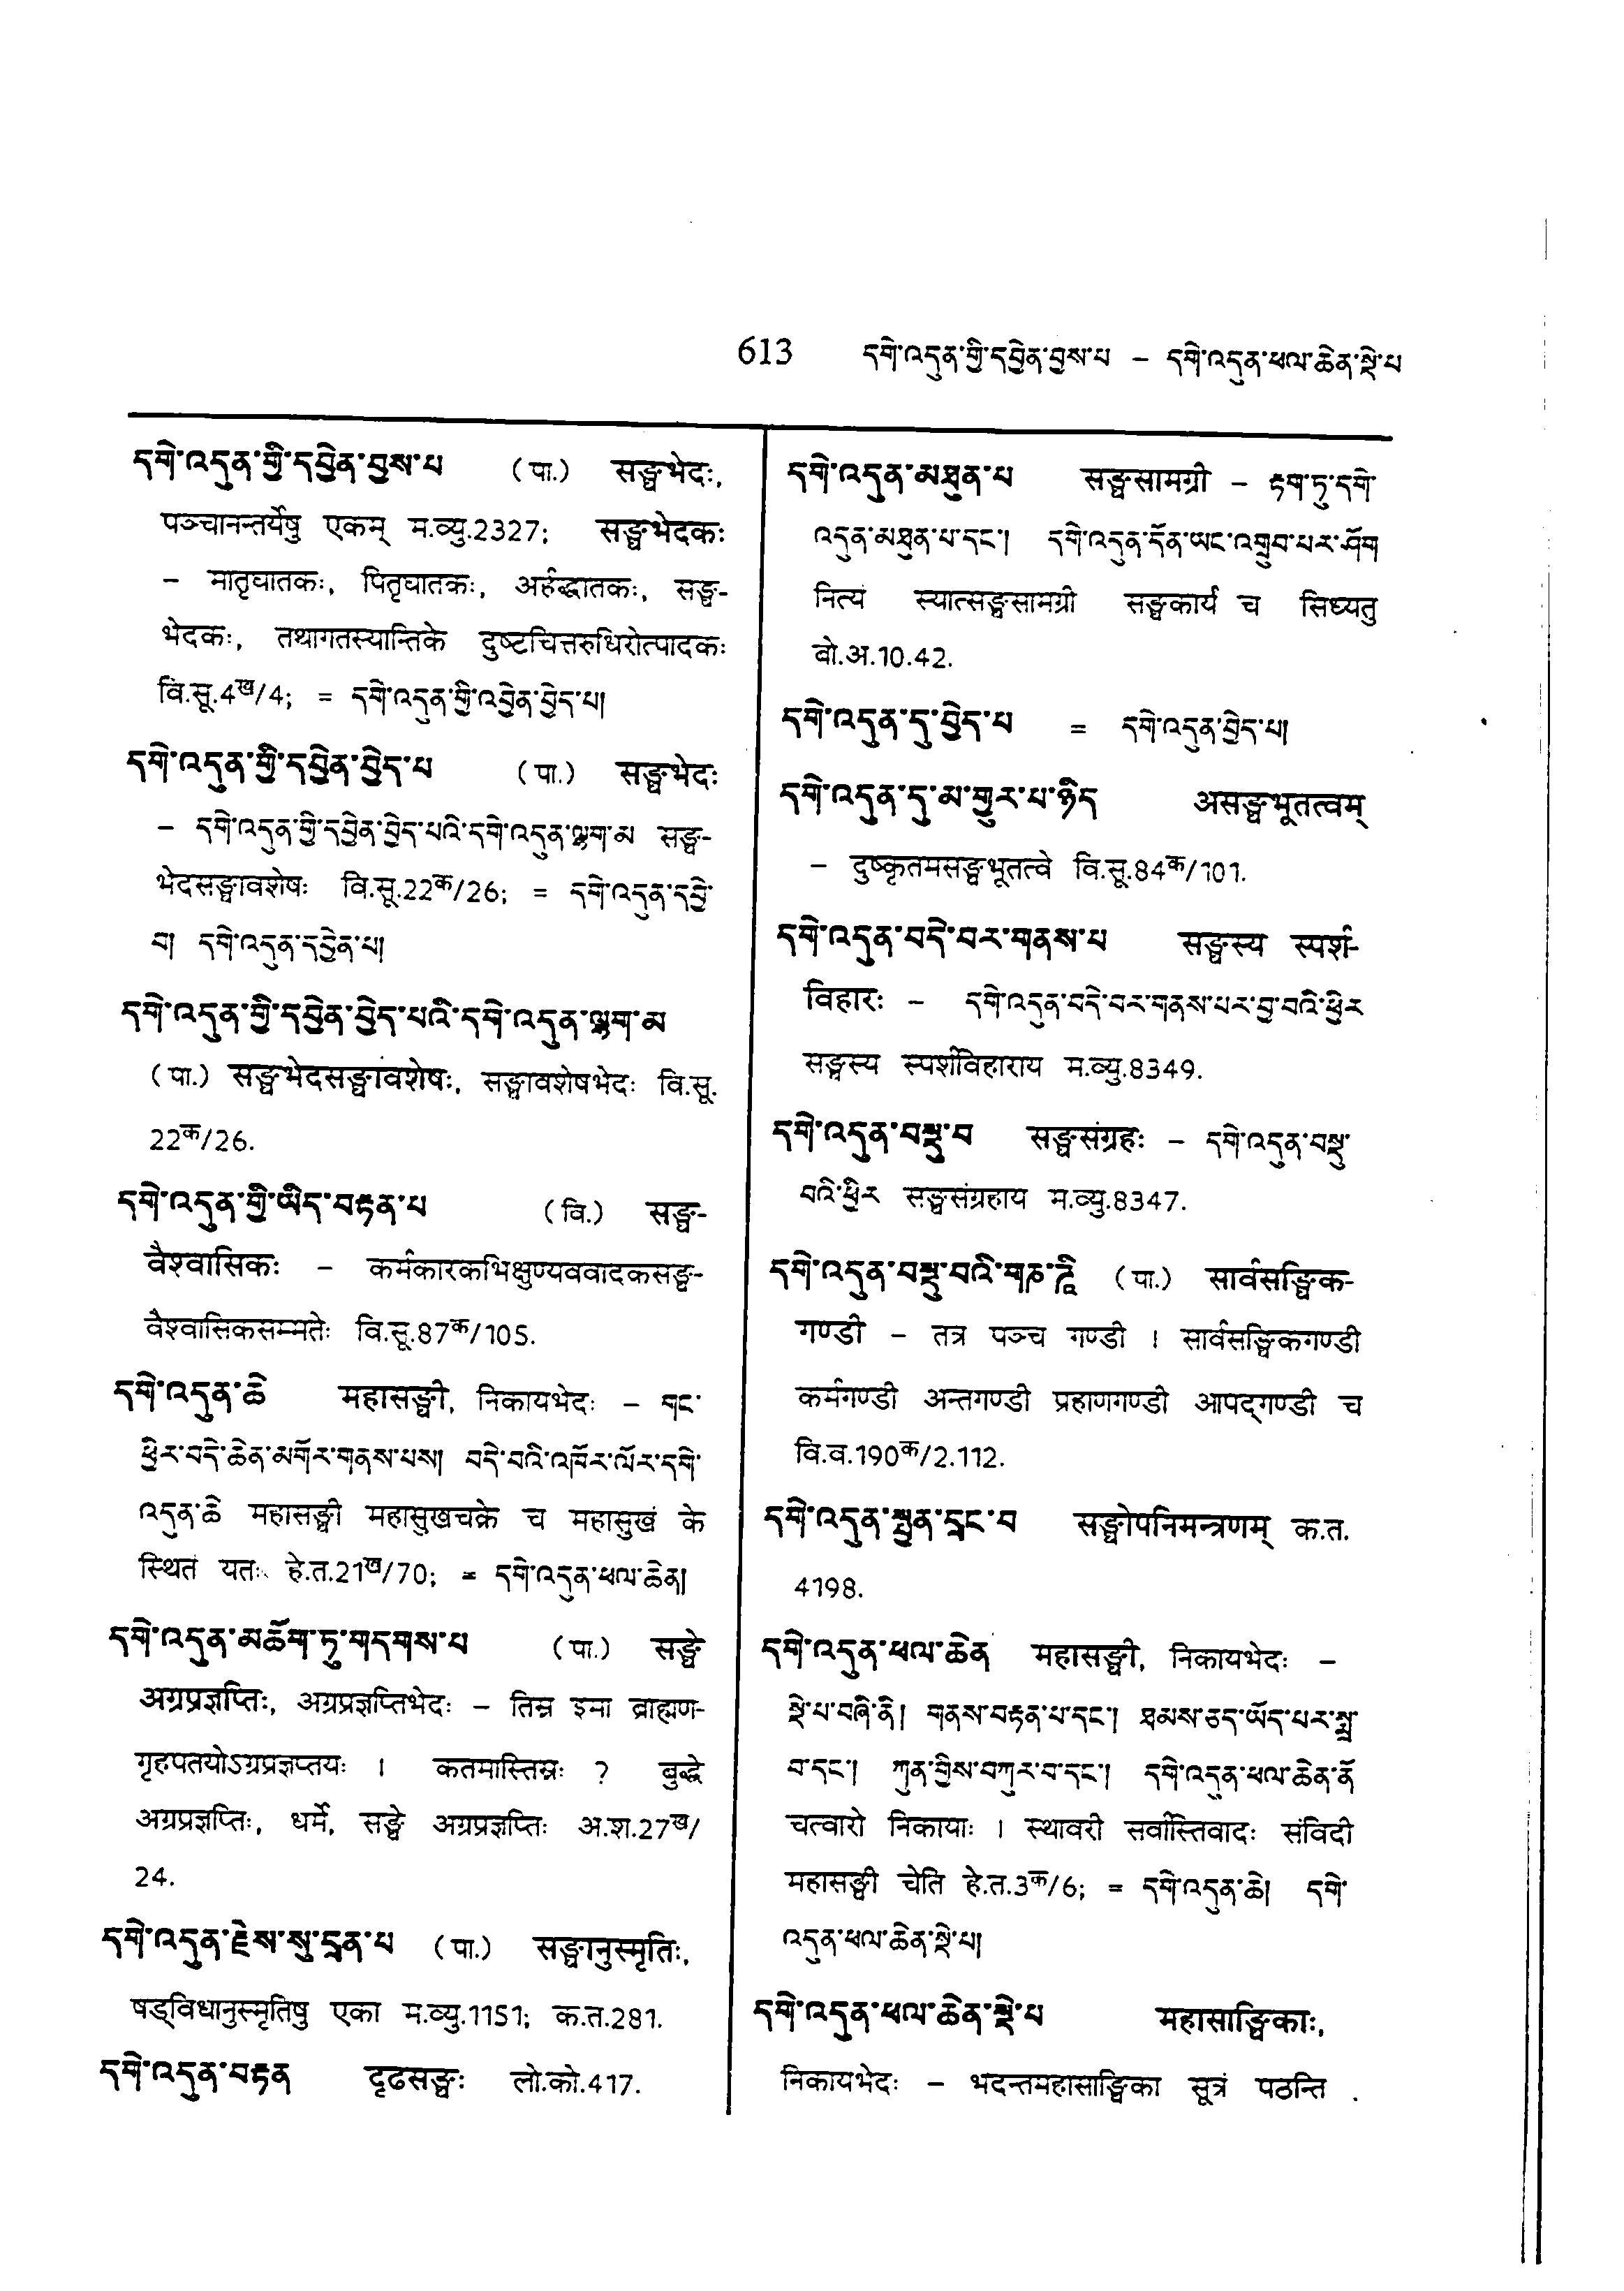 613 དགེ་འདུན་གྱི་དབྱེན་བྱས་པ – དགེ་འདུན་ཕལ་ཆེན་སྡེ་པ
དགེ་འདུན་གྱི་དབྱེན་བྱས་པ (पा.) सङ्घभेदः,
पञ्चानन्तर्येषु एकम् म.व्यु.2327; सङ्घभेदकः
– मातृघातकः, पितृघातकः, अर्हद्धातकः, सङ्घ-
भेदकः, तथागतस्यान्तिके दुष्टचित्तरुधिरोत्पादकः
वि.सू.4ख/4; = དགེ་འདུན་གྱི་འབྱེན་བྱེད་པ།
དགེ་འདུན་གྱི་དབྱེན་བྱེད་པ (पा.) सङ्घभेदः
– དགེ་འདུན་གྱི་དབྱེན་བྱེད་པའི་དགེ་འདུན་ལྷག་མ सङ्घ-
भेदसङ्घावशेषः वि.सू.22क/26; = དགེ་འདུན་དབྱེ་
བ། དགེ་འདུན་དབྱེན་པ།
དགེ་འདུན་གྱི་དབྱེན་བྱེད་པའི་དགེ་འདུན་ལྷག་མ
(पा.) सङ्घभेदसङ्घावशेषः, सङ्घावशेषभेदः वि.सू.
22क/26.
དགེ་འདུན་གྱི་ཡིད་བརྟན་པ (वि.) सङ्घ-
वैश्वासिकः – कर्मकारकभिक्षुण्यववादकसङ्घ-
वैश्वासिकसम्मतेः वि.सू.87क/105.
དགེ་འདུན་ཆེ महासङ्घी, निकायभेदः – གང་
ཕྱིར་བདེ་ཆེན་མགོར་གནས་པས། བདེ་བའི་འཁོར་ལོར་དགེ་
འདུན་ཆེ महासङ्घी महासुखचक्रे च महासुखं के
स्थितं यतः हे.त.21ख/70; = དགེ་འདུན་ཕལ་ཆེན།
དགེ་འདུན་མཆོག་ཏུ་གདགས་པ (पा.) सङ्घे
अग्रप्रज्ञप्तिः, अग्रप्रज्ञप्तिभेदः – तिस्र इमा ब्राह्मण-
गृहपतयोऽग्रप्रज्ञप्तयः । कतमास्तिस्रः ? बुद्धे
अग्रप्रज्ञप्तिः, धर्मे, सङ्घे अग्रप्रज्ञप्तिः अ.श.27ख/
24.
དགེ་འདུན་རྗེས་སུ་དྲན་པ (पा.) सङ्घानुस्मृतिः,
षड्विधानुस्मृतिषु एका म.व्यु.1151; क.त.281.
དགེ་འདུན་བརྟན दृढसङ्घः लो.को.417.
དགེ་འདུན་མཐུན་པ सङ्घसामग्री – རྟག་ཏུ་དགེ་
འདུན་མཐུན་པ་དང་། དགེ་འདུན་དོན་ཡང་འགྲུབ་པར་ཤོག
नित्यं स्यात्सङ्घसामग्री सङ्घकार्यं च सिध्यतु
बो.अ.10.42.
དགེ་འདུན་དུ་བྱེད་པ = དགེ་འདུན་བྱེད་པ།
དགེ་འདུན་དུ་མ་གྱུར་པ་ཉིད असङ्घभूतत्वम्
– दुष्कृतमसङ्घभूतत्वे वि.सू.84क/101.
དགེ་འདུན་བདེ་བར་གནས་པ सङ्घस्य स्पर्श-
विहारः – དགེ་འདུན་བདེ་བར་གནས་པར་བྱ་བའི་ཕྱིར
सङ्घस्य स्पर्शविहाराय म.व्यु.8349.
དགེ་འདུན་བསྡུ་བ सङ्घसंग्रहः – དགེ་འདུན་བསྡུ་
བའི་ཕྱིར सङ्घसंग्रहाय म.व्यु.8347.
དགེ་འདུན་བསྡུ་བའི་གཎ་ཌཱི (पा.) सार्वसङ्घिक-
गण्डी – तत्र पञ्च गण्डी । सार्वसङ्घिकगण्डी
कर्मगण्डी अन्तगण्डी प्रहाणगण्डी आपद्गण्डी च
वि.व.190क/2.112.
དགེ་འདུན་སྤྱན་དྲང་བ सङ्घोपनिमन्त्रणम् क.त.
4198.
དགེ་འདུན་ཕལ་ཆེན महासङ्घी, निकायभेदः –
སྡེ་པ་བཞི་ནི། གནས་བརྟན་པ་དང་། ཐམས་ཅད་ཡོད་པར་སྨྲ་
བ་དང་། ཀུན་གྱིས་བཀུར་བ་དང་། དགེ་འདུན་ཕལ་ཆེན་ནོ
चत्वारो निकायाः । स्थावरी सर्वास्तिवादः संविदी
महासङ्घी चेति हे.त.3क/6; = དགེ་འདུན་ཆེ། དགེ་
འདུན་ཕལ་ཆེན་སྡེ་པ།
དགེ་འདུན་ཕལ་ཆེན་སྡེ་པ महासाङ्घिकाः,
निकायभेदः – भदन्तमहासाङ्घिका सूत्रं पठन्ति